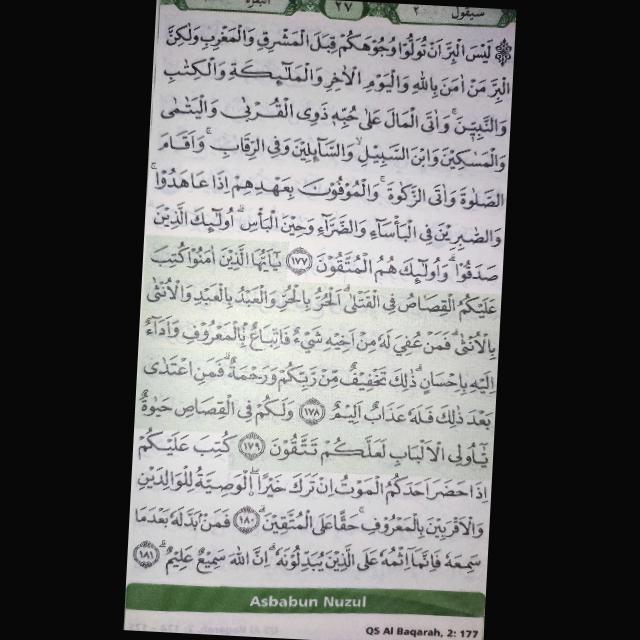 سيقول ٢ ٢٧ البقرة ٢
۞ لَيْسَ الْبِرَّ اَنْ تُوَلُّوْا وُجُوْهَكُمْ قِبَلَ الْمَشْرِقِ وَالْمَغْرِبِ وَلٰكِنَّ
الْبِرَّ مَنْ اٰمَنَ بِاللّٰهِ وَالْيَوْمِ الْاٰخِرِ وَالْمَلٰۤىِٕكَةِ وَالْكِتٰبِ
وَالنَّبِيّٖنَۚ وَاٰتَى الْمَالَ عَلٰى حُبِّهٖ ذَوِى الْقُرْبٰى وَالْيَتٰمٰى
وَالْمَسٰكِيْنَ وَابْنَ السَّبِيْلِۙ وَالسَّاۤىِٕلِيْنَ وَفِى الرِّقَابِۚ وَاَقَامَ
الصَّلٰوةَ وَاٰتَى الزَّكٰوةَۚ وَالْمُوْفُوْنَ بِعَهْدِهِمْ اِذَا عَاهَدُوْاۚ
وَالصّٰبِرِيْنَ فِى الْبَأْسَاۤءِ وَالضَّرَّاۤءِ وَحِيْنَ الْبَأْسِۗ اُولٰۤىِٕكَ الَّذِيْنَ
صَدَقُوْاۗ وَاُولٰۤىِٕكَ هُمُ الْمُتَّقُوْنَ ﴿١٧٧﴾ يٰٓاَيُّهَا الَّذِيْنَ اٰمَنُوْا كُتِبَ
عَلَيْكُمُ الْقِصَاصُ فِى الْقَتْلٰىۗ اَلْحُرُّ بِالْحُرِّ وَالْعَبْدُ بِالْعَبْدِ وَالْاُنْثٰى
بِالْاُنْثٰىۗ فَمَنْ عُفِيَ لَهٗ مِنْ اَخِيْهِ شَيْءٌ فَاتِّبَاعٌۢ بِالْمَعْرُوْفِ وَاَدَاۤءٌ
اِلَيْهِ بِاِحْسَانٍۗ ذٰلِكَ تَخْفِيْفٌ مِّنْ رَّبِّكُمْ وَرَحْمَةٌۗ فَمَنِ اعْتَدٰى
بَعْدَ ذٰلِكَ فَلَهٗ عَذَابٌ اَلِيْمٌ ﴿١٧٨﴾ وَلَكُمْ فِى الْقِصَاصِ حَيٰوةٌ
يّٰٓاُولِى الْاَلْبَابِ لَعَلَّكُمْ تَتَّقُوْنَ ﴿١٧٩﴾ كُتِبَ عَلَيْكُمْ
اِذَا حَضَرَ اَحَدَكُمُ الْمَوْتُ اِنْ تَرَكَ خَيْرًاۖ ۨالْوَصِيَّةُ لِلْوَالِدَيْنِ
وَالْاَقْرَبِيْنَ بِالْمَعْرُوْفِۚ حَقًّا عَلَى الْمُتَّقِيْنَۗ ﴿١٨٠﴾ فَمَنْۢ بَدَّلَهٗ بَعْدَمَا
سَمِعَهٗ فَاِنَّمَآ اِثْمُهٗ عَلَى الَّذِيْنَ يُبَدِّلُوْنَهٗۗ اِنَّ اللّٰهَ سَمِيْعٌ عَلِيْمٌۗ ﴿١٨١﴾
Asbabun Nuzul
QS Al Baqarah, 2: 177